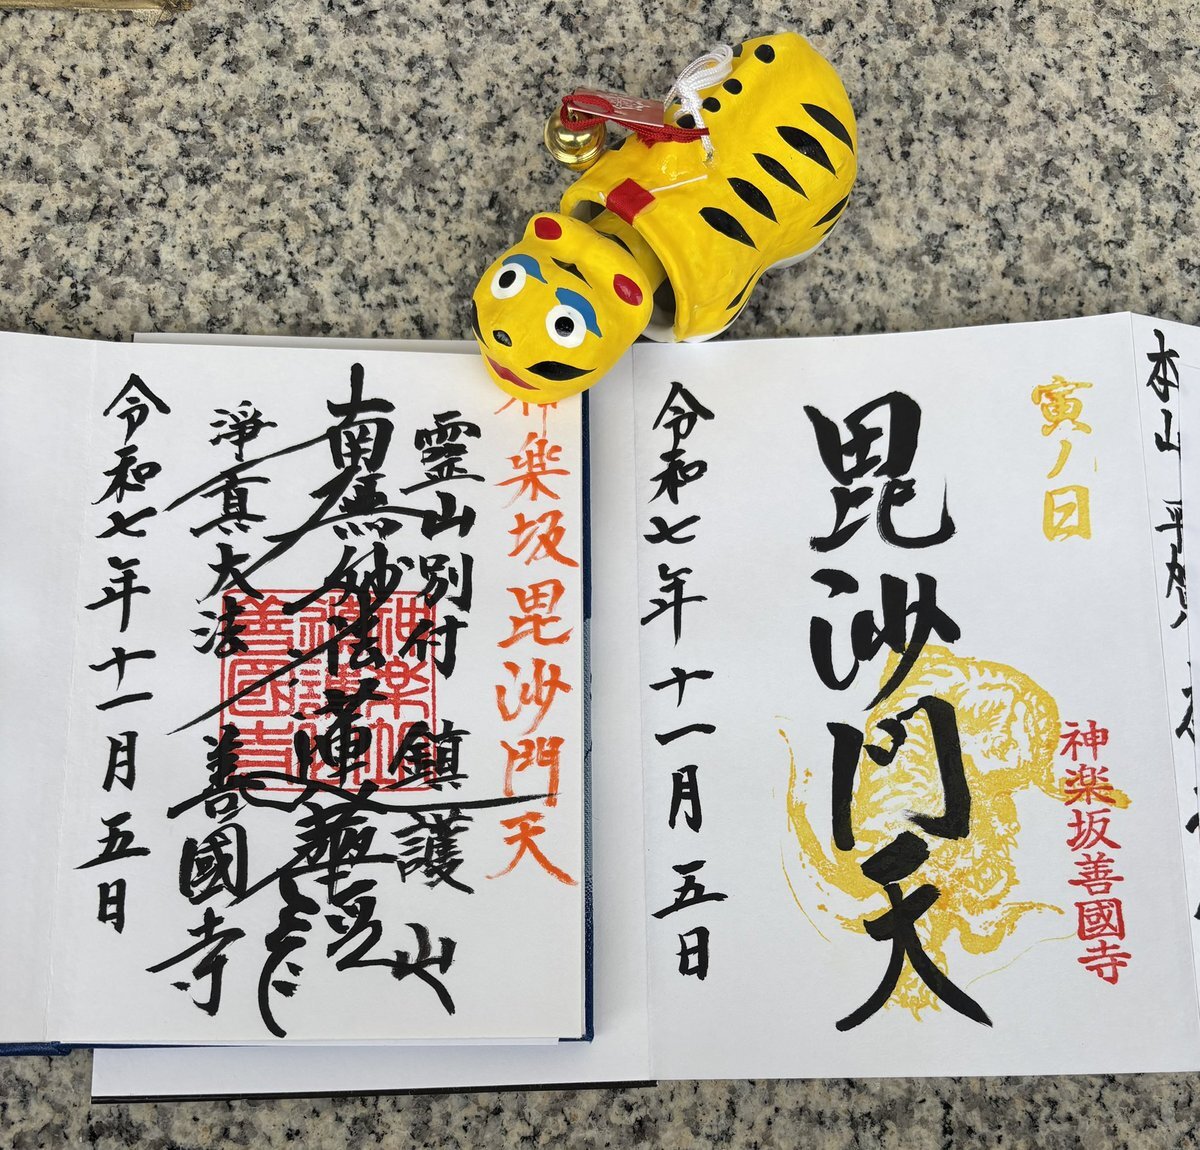 寅ノ日
神楽坂善國寺
毘沙門天
令和七年十一月五日
楽坂毘沙門天
霊山別付 鎮護山
南無妙法蓮華経
淨真大法 善國寺
令和七年十一月五日
本山